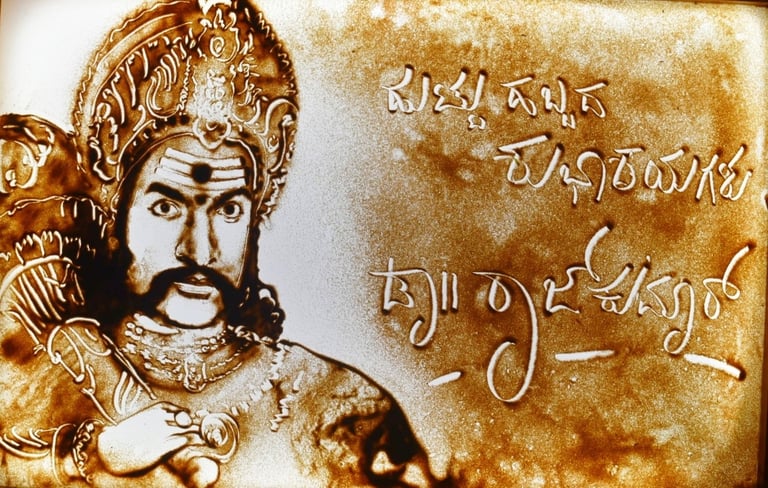 ಹುಟ್ಟು ಹಬ್ಬದ
ಶುಭಾಶಯಗಳು
ಡಾ|| ರಾಜ್‌ಕುಮಾರ್